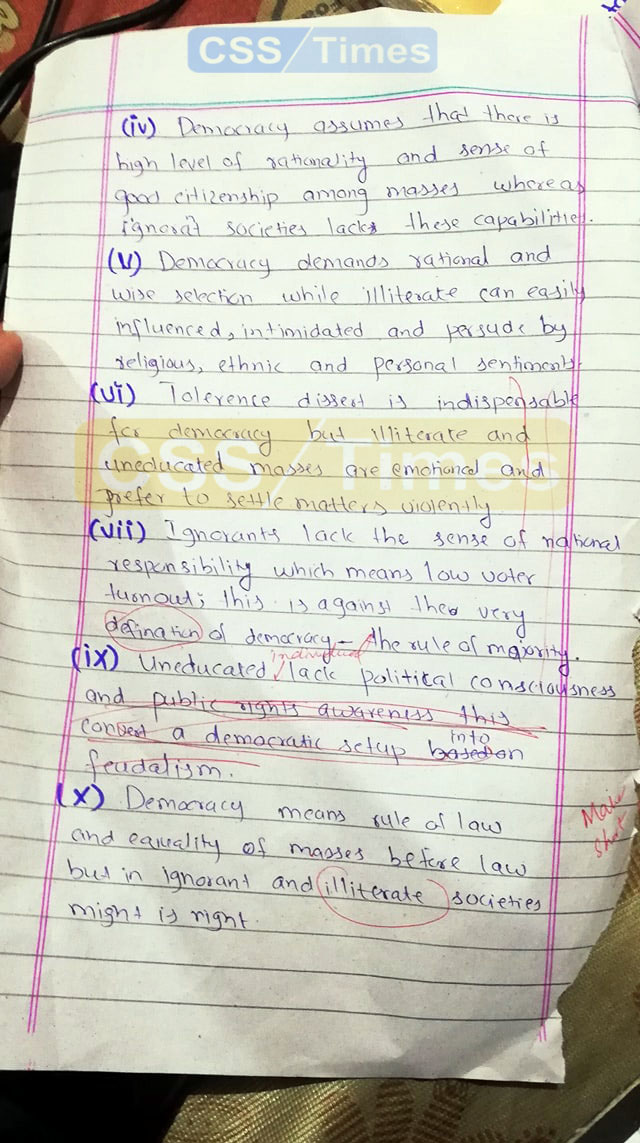 CSS/Times
(iv) Democracy assumes that there is
high level of rationality and sense of
good citizenship among masses whereas
ignorat societies lacks these capabilities.
(v) Democracy demands rational and
wise selection while illiterate can easily
influenced, intimidated and persude by
religious, ethnic and personal sentiments.
(vi) Tolerence dissert is indispensable
for democracy but illiterate and
CSS/Times
uneducated masses are emotional and
prefer to settle matters violently.
(vii) Ignorants lack the sense of national
responsibility which means low voter
turnout; this is against the very
defination of democracy - the rule of majority.
individual
(ix) Uneducated lack political consciousness
and public rights awareness this
into
convert a democratic setup based on
feudalism.
(x) Democracy means rule of law
Make
short
and equality of masses before law
but in ignorant and illiterate societies
might is right.